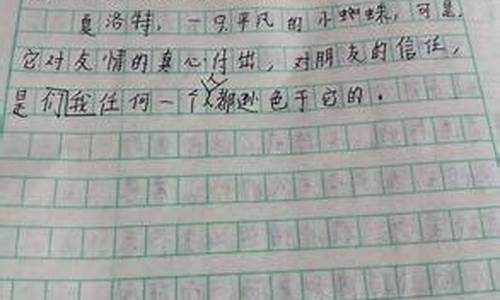 夏洛特，一只平凡的小蜘蛛，可是，
它对友情的真心付出，对朋友的信任，
是们我任何一个人都逊色于它的。